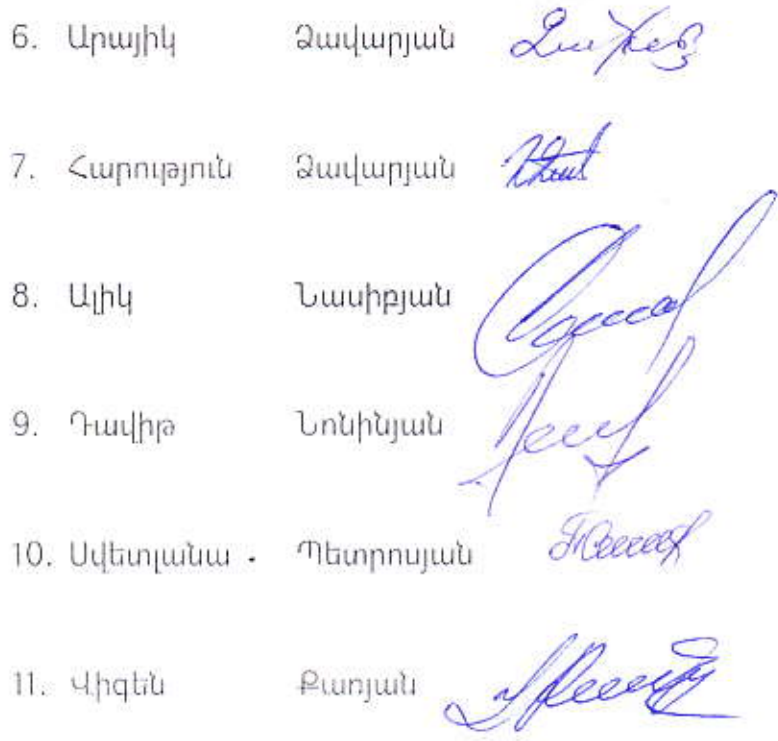 6. Արայիկ Ձավարյան
7. Հարություն Ձավարյան
8. Ալիկ Նասիբյան
9. Դավիթ Նոնինյան
10. Սվետլանա . Պետրոսյան
11. Վիգեն Քառյան